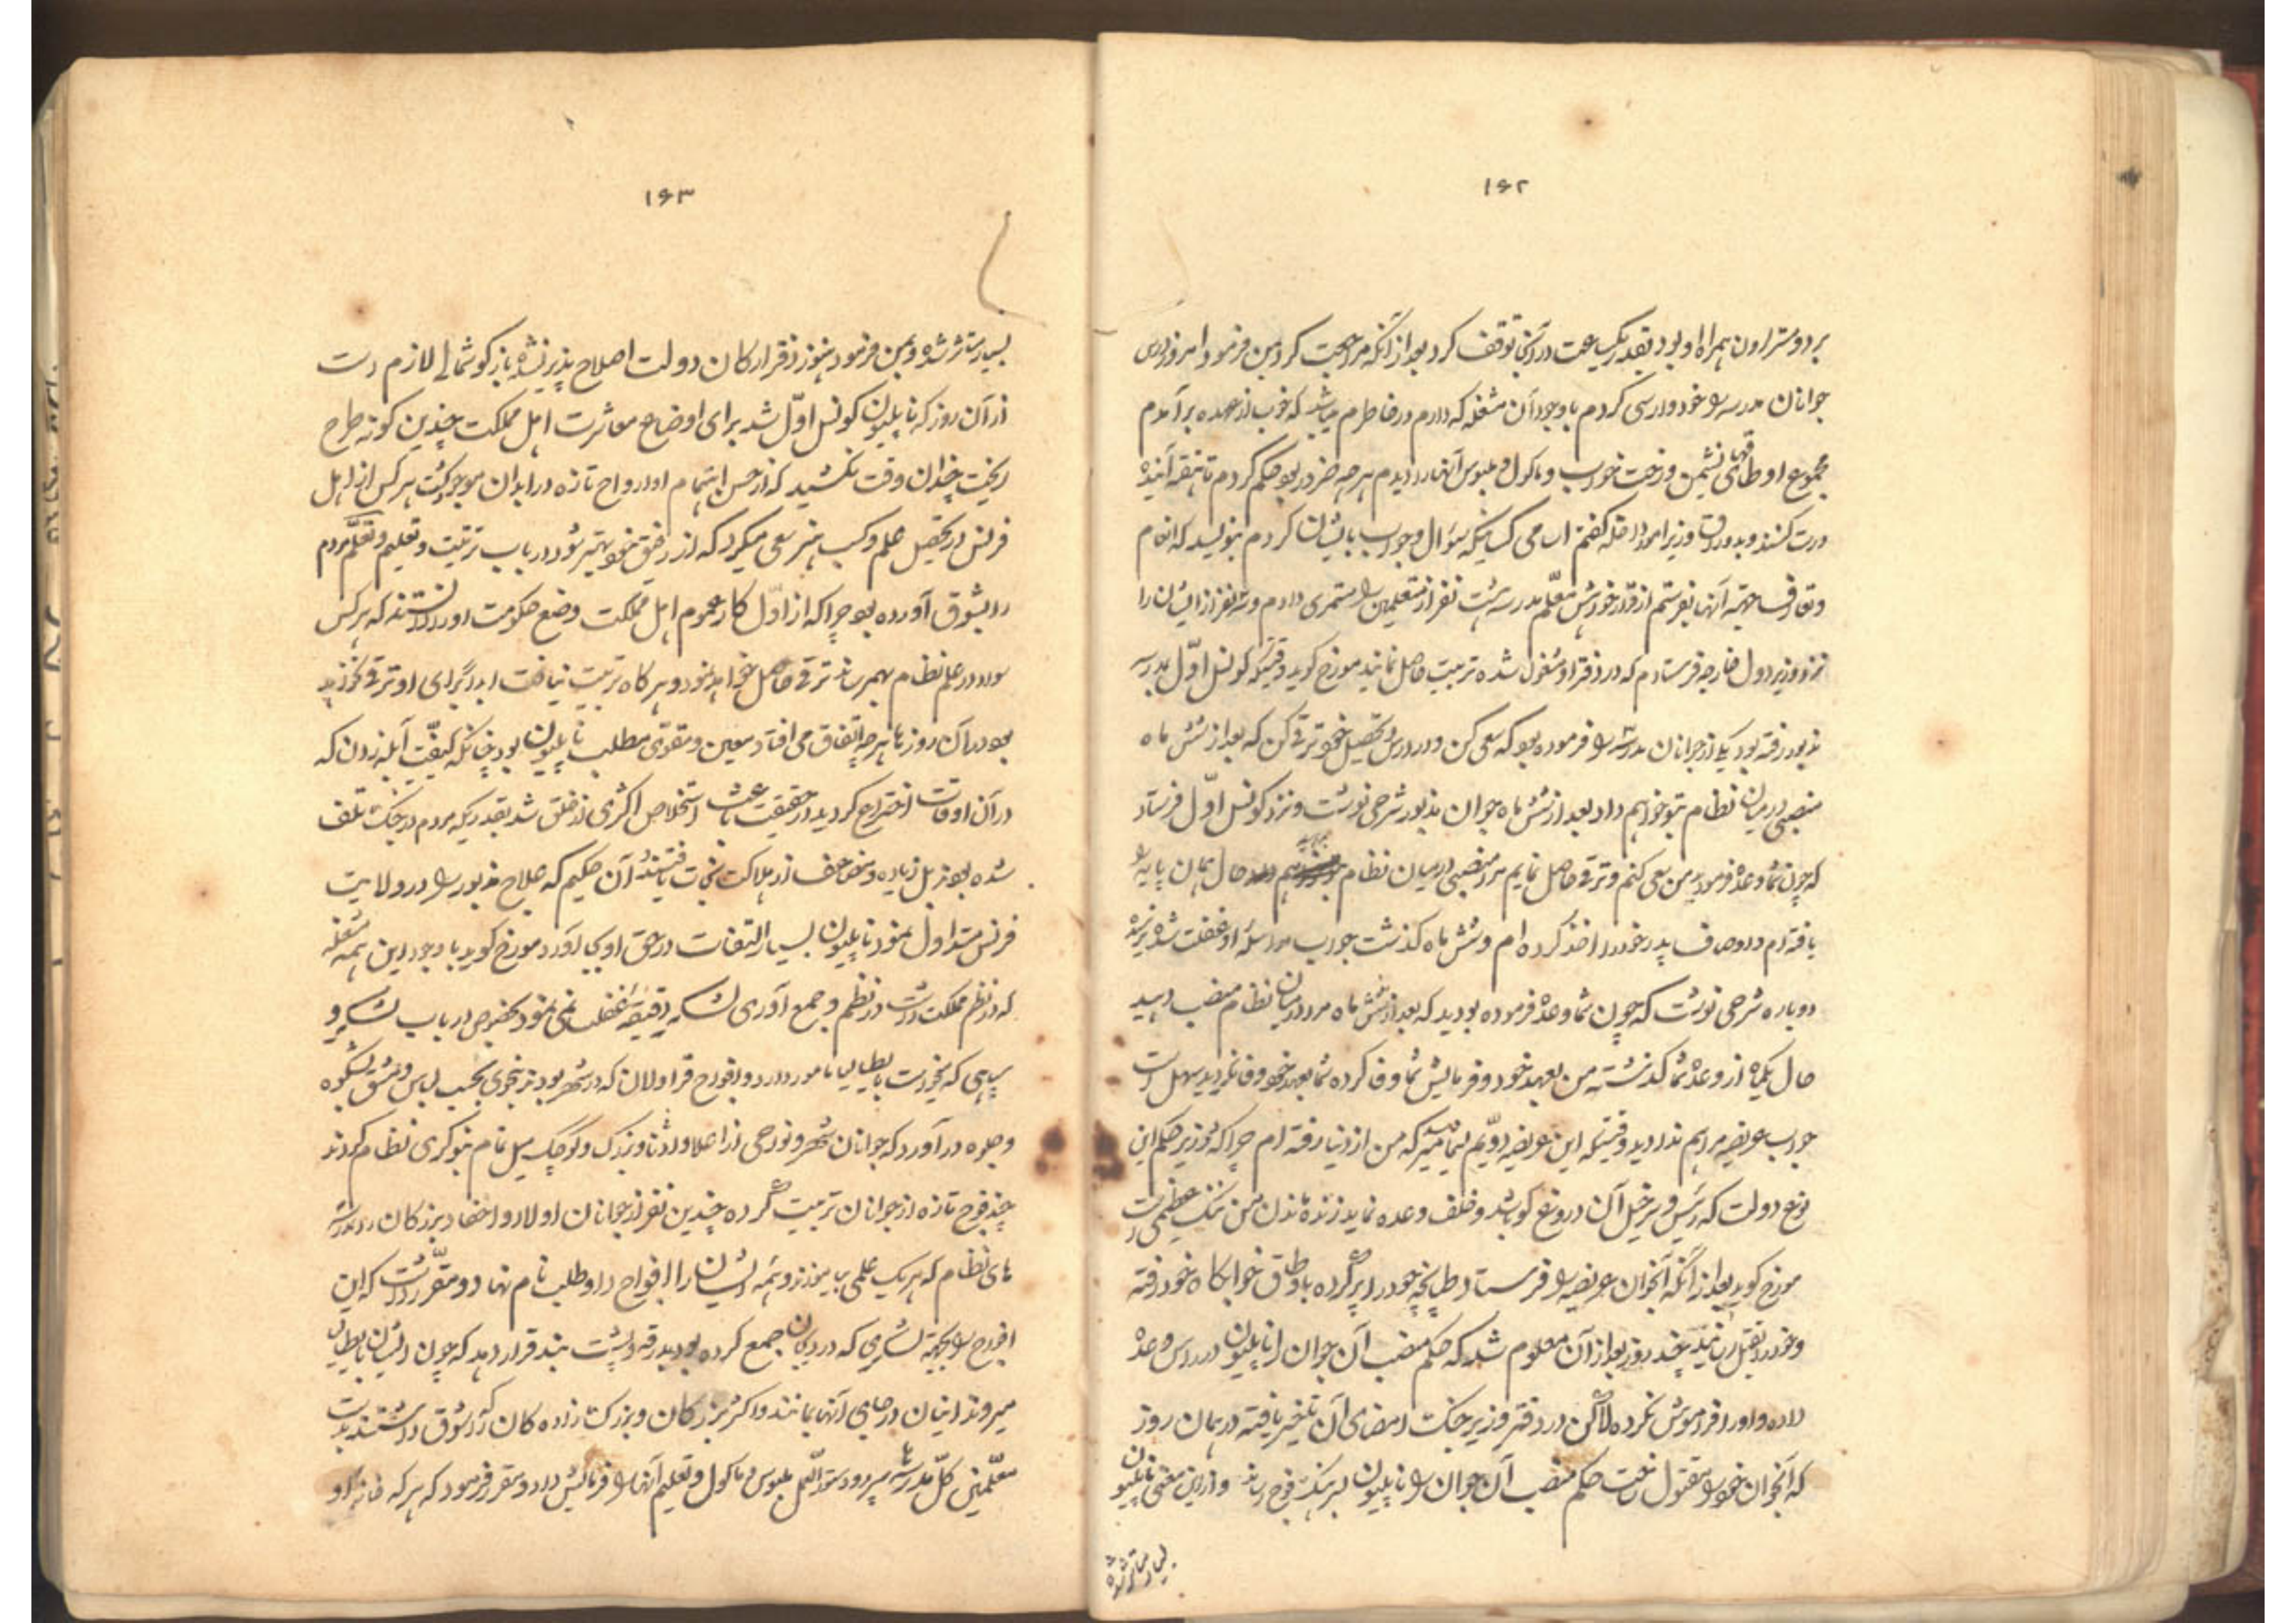 ۱۶۲
بر دوستراون همراه او بود بقدر یکساعت در آنجا توقف کرد بعد از آنکه مراجعت کرد بمن فرمود امروز درس
جوانان مدرسه را خود وارسی کردم با وجود آن مشغله که دارم در خاطرم میباشد که خوب از عهده برآمدم
مجموع اوطاقهای نشیمن و رخت خواب و ماکول و ملبوس آنها را دیدم هرچه ضرور بود حکم کردم تا هفته آینده
درست کنند و بدوراق وزیر امور داخله گفتم اسامی کسانیکه سؤال و جواب با ایشان کردم بنویسد که انعام
و تعارف جهة آنها بفرستم از قرار خواهش معلم مدرسه هشت نفر از متعلمین را مستمری دادم و سه نفر از ایشان را
نزد وزیر دول خارجه فرستادم که در دفتر او مشغول شده تربیت حاصل نمایند مورخ گوید وقتیکه کونسل اوّل بمدرسه
مذبور رفته بود یکی از جوانان مدرسه را فرموده بود که سعی کن و در درس و تحصیل خود ترقی کن که بعد از شش ماه
منصبی در میان نظام بتو خواهم داد بعد از شش ماه جوان مذبور شرحی نوشت و نزد کونسل اوّل فرستاد
که چون شما وعده فرمودید من سعی کنم و ترقی حاصل نمایم مرا منصبی در میان نظام بدهید حال همان پایه را
یافته ام و اوصاف پدر خود را اخذ کرده ام و شش ماه گذشت جواب مراسله او غفلت شد نرسید
دوباره شرحی نوشت که چون شما وعده فرموده بودید که بعد از شش ماه مرا در میان نظام منصب دهید
حال یکماه از وعده شما گذشته من بعهد خود و فرمایش شما وفا کرده شما بعهد خود وفا نکردید سهل است
جواب عریضه مرا هم ندادید وقتیکه این عریضه دویّم بشما میرسد که من از دنیا رفته ام چرا که در زیر حکم این
نوع دولت که رئیس و سرخیل آن دروغ گو باشد و خلف وعده نماید زنده ماندن من ننگ عظیمی است
مورخ گوید بعد از آنکه آنجوان عریضه را فرستاد طپانچه خود را پر کرده باوطاق خوابگاه خود رفته
و خود را بقتل رسانید چند روز بعد از آن معلوم شد که حکم منصب آن جوان را ناپلیون در راس وعده
داده و او را فراموش نکرده لاکن در دفتر وزیر جنگ امضای آن تأخیر یافته در همان روز
که آنجوان خود را مقتول ساخت حکم منصب آن جوان را ناپلیون بسرهنگ فوج رساند و از این معنی ناپلیون
بسیار متأثر شده
۱۶۳
بسیار متأثر شده و بمن فرمود هنوز دفتر ارکان دولت اصلاح پذیر نشده باز گوشمالی لازم است
از آن روز که ناپلیون کونسل اوّل شد برای اوضاع معاشرت اهل مملکت چندین گونه طرح
ریخت چندان وقت نکشید که از حسن اهتمام او ارواح تازه در ابدان موجود گشت هر کس از اهل
فرنس در تحصیل علم و کسب هنر سعی میکرد که از رفیق خود بهتر شود در باب تربیت و تعلیم و تعلّم مردم
را بشوق آورده بود چرا که از اوّل کار عموم اهل مملکت وضع حکومت او را دانستند که هر کس
سواد در علم نظام بهم رساند ترقی حاصل خواهد نمود و هرگاه تربیت نیافت ابداً برای او ترقی نخواهد
بود در آن روزها هرچه اتفاق می افتاد معین و مقوی مطلب ناپلیون بود چنانکه کیفیّت آبله زدن که
در آن اوقات اختراع گردید در حقیقت باعث استخلاص اکثری از خلق شد بقدریکه مردم در جنگ تلف
شده بودند بل زیاده و مضاعف از هلاکت نجات یافتند آن حکیم که علاج مذبور را در ولایت
فرنس متداول نمود ناپلیون بسیار التفات در حق او بجا آورد مورخ گوید با وجود این همه مشغله
که در نظم مملکت داشت در نظم و جمع آوری لشکر دقیقه غفلت نمی نمود بخصوص در باب لشکر و
سپاهی که بخواست بایطالیا مأمور دارد و افواج قراولان که در شهر بودند بنحوی بحسب لباس و مشق بشکوه
و جلوه در آورد که جوانان شهر و نواحی از اعلا و ادنا و بزرگ و کوچک میل تمام بنوکری نظام کردند
چند فوج تازه از جوانان تربیت کرده چندین نفر از جوانان اولاد و احفاد بزرگان را مدرسه
های نظام که هر یک علمی بیاموزند و همه ایشان را افواج داوطلب نام نهاد و مقرّر داشت که این
افواج را بجهة لشکری که در دیجان جمع کرده بودبدرقه و پشت بند قرار دهد که چون ایشان بایطالیا
میروند اینان در جای آنها بمانند و اکثر بزرگان و بزرگ زاده گان که شوق داشتند بدست
معلّمین کلّ مدرسه سپرد و دستورالعمل ملبوس و ماکول و تعلیم آنها را فرمایش داد و مقرر فرمود که هر که خانه او